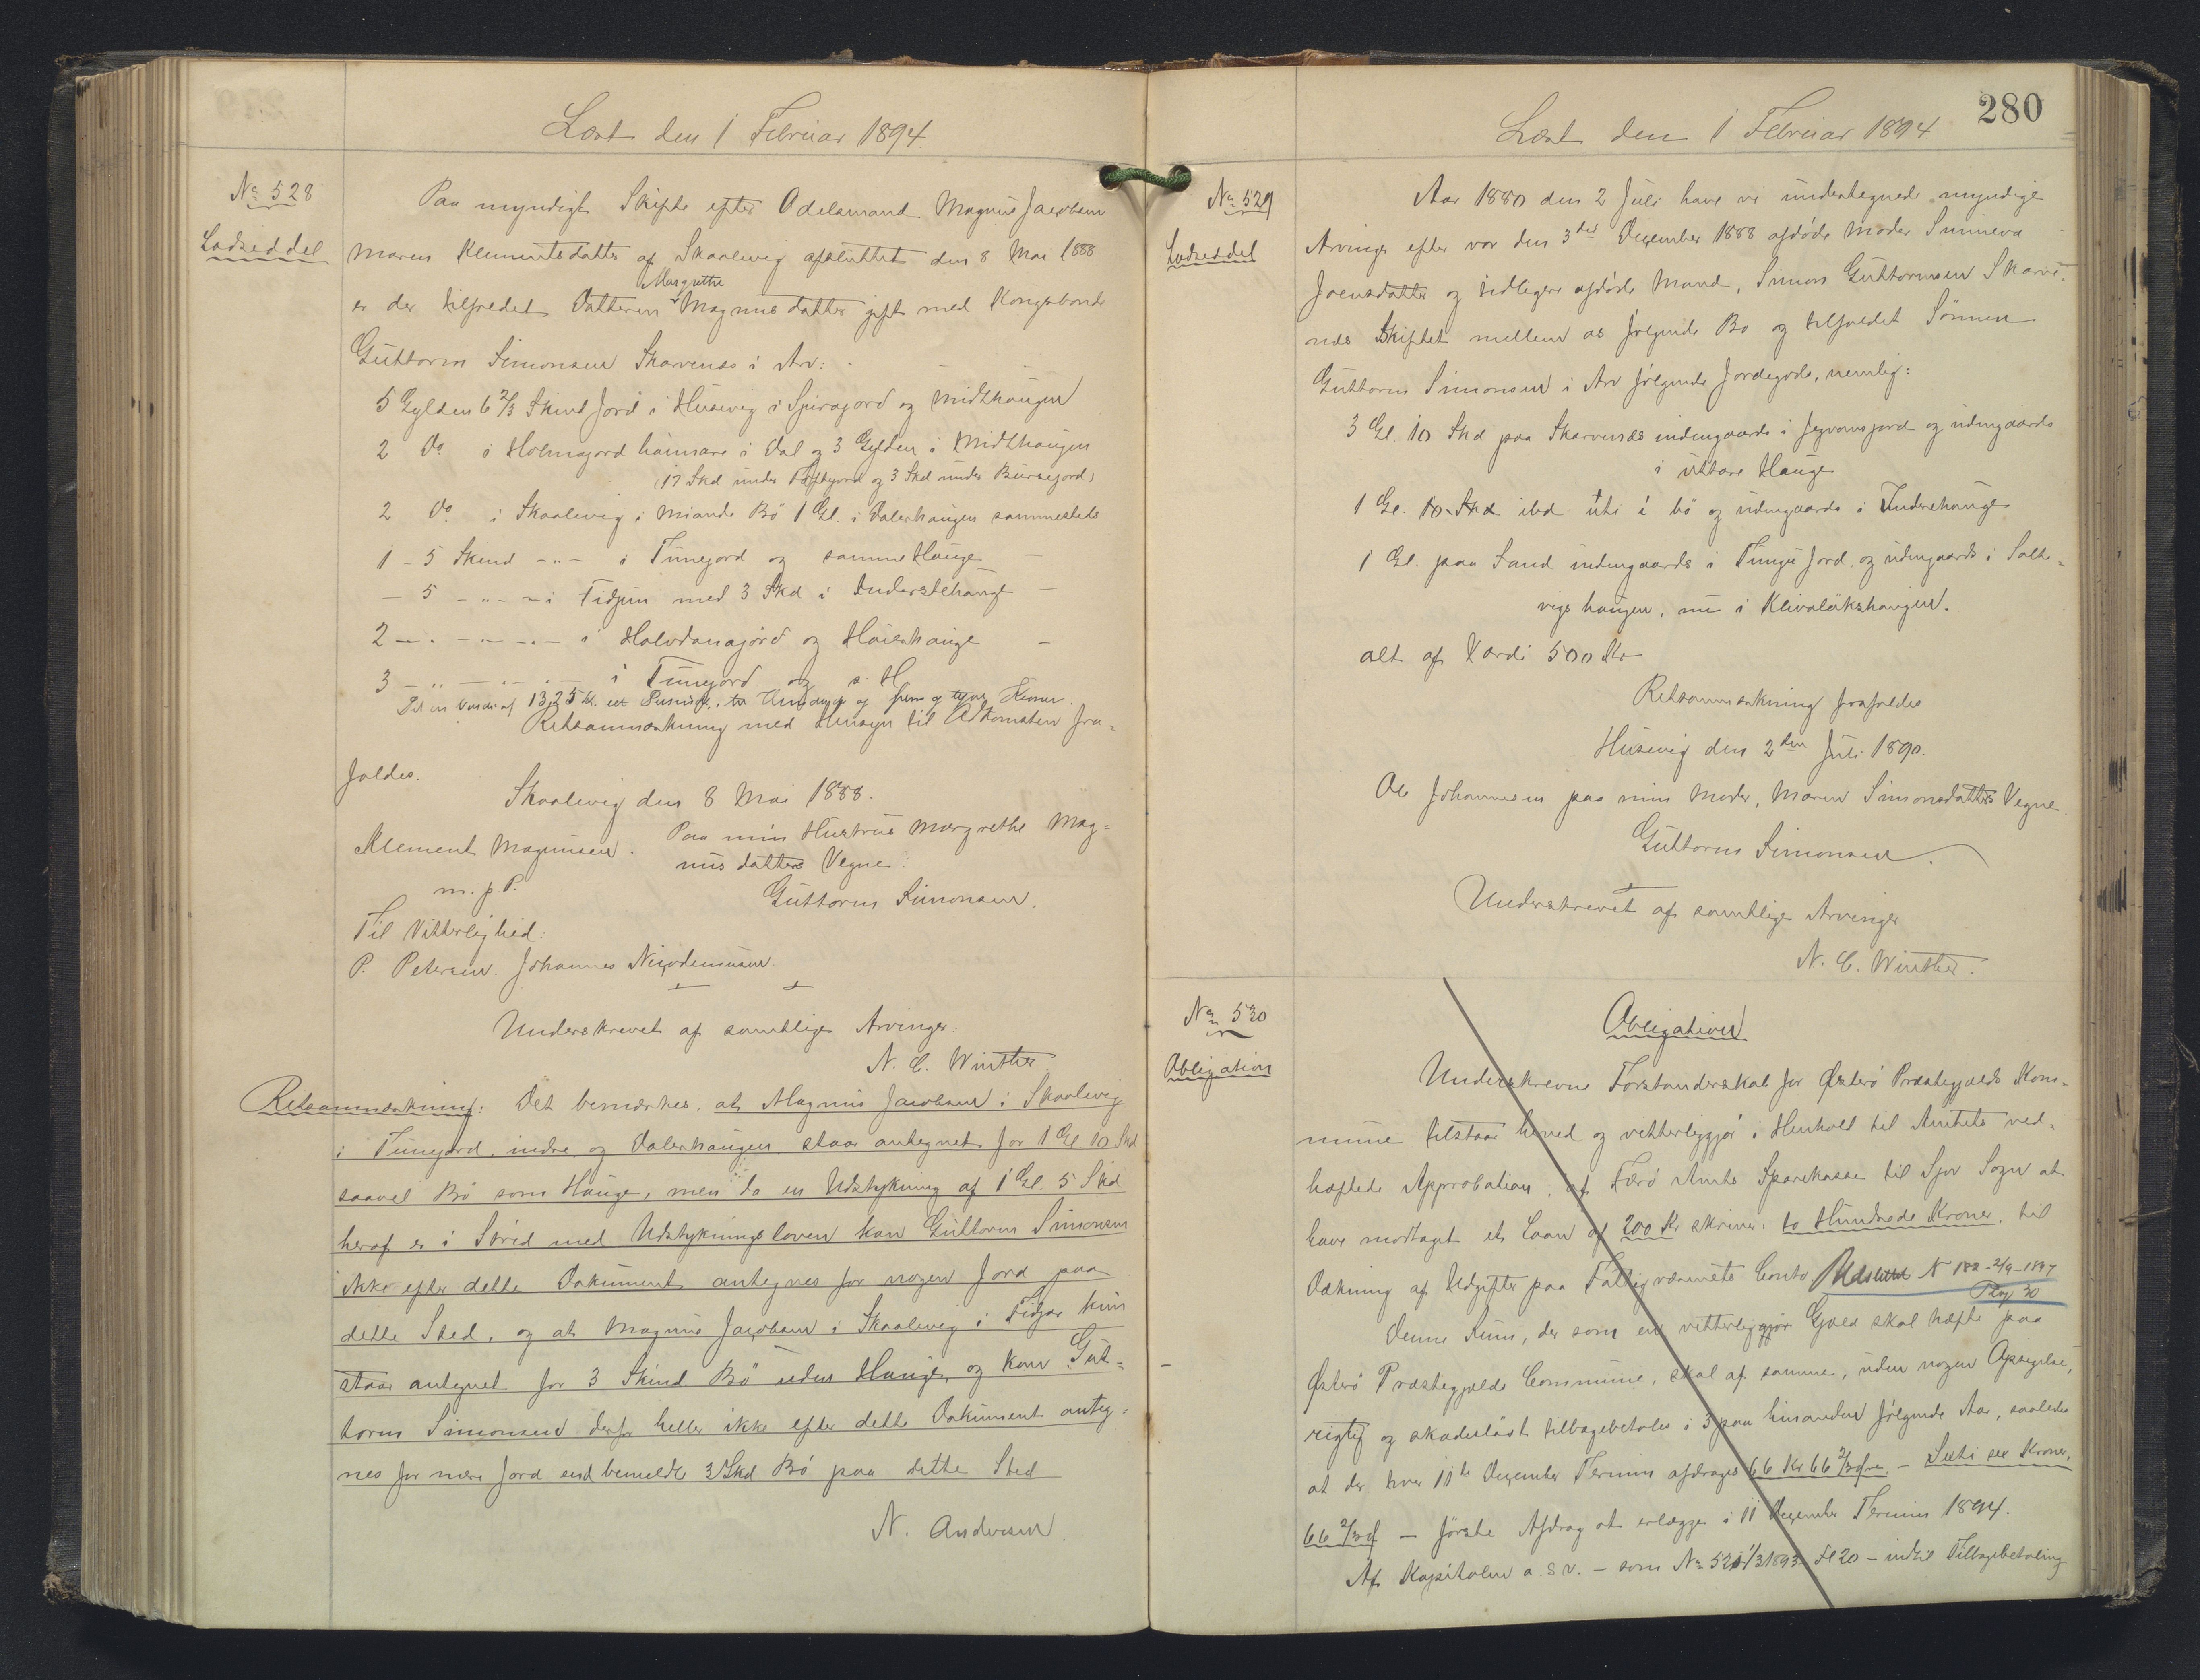 Læst den 1 Februar 1894.
No 528
Lodseddel
Paa myndigt Skifte efter Odelsmand Magnus Jacobsen
Maren Klementsdatter af Skaalevig afsluttet den 8 Mai 1888
er der tilfredet Datteren Margrethe Magnusdatter gift med Kongsbonde
Guttorm Simonsen Skarvenæs i Arv:
5 Gylden 6 2/3 Skind Jord i Husevig i Spiragjord og Midthaugen
2 Do i Holmagjord haimare i Dal og 3 Gylden i Midthaugen
(17 Skd under Toftegjord og 3 Skd under Búrsegjord)
2 Do i Skaalevig i Miande Bö 1 Gl. i Dalerhaugen sammesteds
1 - 5 Skind - " - i Tunegjord og samme Hauge -
- 5 - " - - i Fidjun med 3 Skd i Inderstehauge -
2 - . - " - " - i Halvdanagjord og Haierhauge -
3 - " - " - i Tunegjord og s. H
Til en Værdi af 1325 kr. et Tusinde, tre Hundrede og fem og tyve Kroner.
Retsanmærkning med Hensyn til Adkomsten fra=
faldes.
Skaalevig den 8 Mai 1888.
Klement Magnusen. Paa min Hustrus Margrethe Mag=
nusdatters Vegne:
m. p. P.
Guttorm Simonsen.
Til Vitterlighed:
P. Petersen. Johannes Nicodemusen
Underskrevet af samtlige Arvinger.
N. C. Winther
Retsanmærkning: Det bemærkes, at Magnus Jacobsen i Skaalevig
i Tunegjord, indre og Dalerhaugen staar antegnet for 1 Gl. 10 Skd
saavel Bö som Hauge, men da en Udstykning af 1 Gl. 5 Skd
heraf er i Strid med Udstykningsloven kan Guttorm Simonsen
ikke efter dette Dokument antegnes for nogen Jord paa
dette Sted, og at Magnus Jacobsen i Skaalevig i Fidjar kun
staar antegnet for 3 Skind Bö uden Hauge, og kan Gut=
torm Simonsen derfor heller ikke efter dette Dokument anteg=
nes for mere Jord end bemeldte 3 Skd Bö paa dette Sted
N. Andersen.
280
Læst den 1 Februar 1894
No 529
Lodseddel
Aar 1880 den 2 Juli have vi undertegnede myndige
Arvinger efter vor den 3die Dezember 1888 afdöde Moder Sunneva
Joensdatter og tidligere afdöde Mand, Simon Guttormsen Skarve-
næs Skiftet mellem os fölgende Bo og tilfaldet Sönnen
Guttorm Simonsen i Arv fölgende Jordegods, nemlig:
3 Gl. 10 Skd paa Skarvenæs indengaards i Jegvansjord og udengaards
i uttare Hauge
1 Gl. 10 Skd ibd uti i bö og udengaards i Inderehauge
1 Gl. paa Sand indengaards i Tungu Jord, og udengaards i Salte=
vigs haugen, nu i Klivalökshaugen.
alt af Værdi 500 Kr
Retsanmærkning frafaldes
Husevig den 2den Juli 1890.
Ole Johannesen paa min Moder, Maren Simonsdatters Vegne
Guttorm Simonsen.
Underskrevet af samtlige Arvinger
N. C. Winther.
No 530
Obligation
Obligation
Underskrevne Forstanderskab for Österö Præstegjælds Kom=
mune tilstaar herved og vitterliggjör i Henhold til Amtets ved=
hæftede Approbation, af Færö Amts Sparekasse til Sjov Sogn at
have modtaget et Laan af 200 Kr skriver: to Hundrede Kroner, til
Dækning af Udgifter paa Fattigvæsenets Conto Udslettet N 182 - 2/9 - 1897
Pag 30
Denne Sum, der som en vitterliggjör Gjæld skal hæfte paa
Österö Præstegjælds Commune, skal af samme, uden nogen Opsigelse,
rigtig og skadeslöst tilbagebetales i 3 paa hinanden fölgende Aar, saaledes
at der hver 11te Dezember Termin afdrages 66 Kr 66 2/3 Öre. - Sexti sex Kroner,
66 2/3 Ö - förste Afdrag at erlægge i 11 Dezember Termin 1894.
Af Kapitalen o. s. v. - som No 521 1/3 1893 Fl 20 - indtil Tilbagebetaling